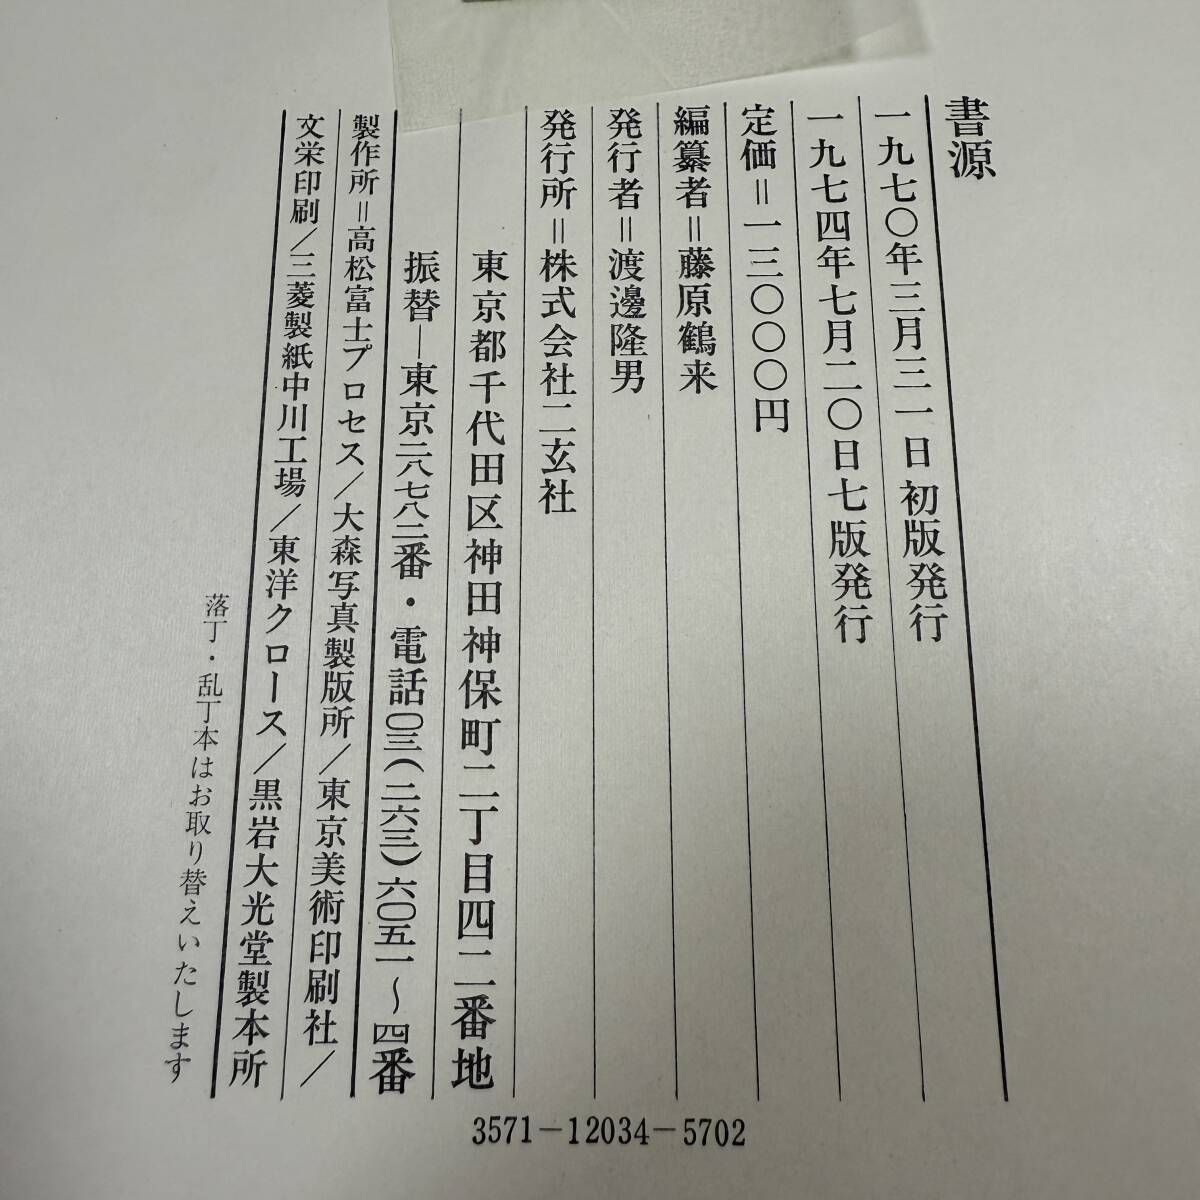 書源
一九七〇年三月三一日初版発行
一九七四年七月二〇日七版発行
定価＝一三〇〇〇円
編纂者＝藤原鶴来
発行者＝渡邊隆男
発行所＝株式会社二玄社
東京都千代田区神田神保町二丁目四二番地
振替―東京二八七八二番・電話〇三（二六三）六〇五一〜四番
製作所＝高松富士プロセス/大森写真製版所/東京美術印刷社/
文栄印刷/三菱製紙中川工場/東洋クロース/黒岩大光堂製本所
落丁・乱丁本はお取り替えいたします
3571-12034-5702